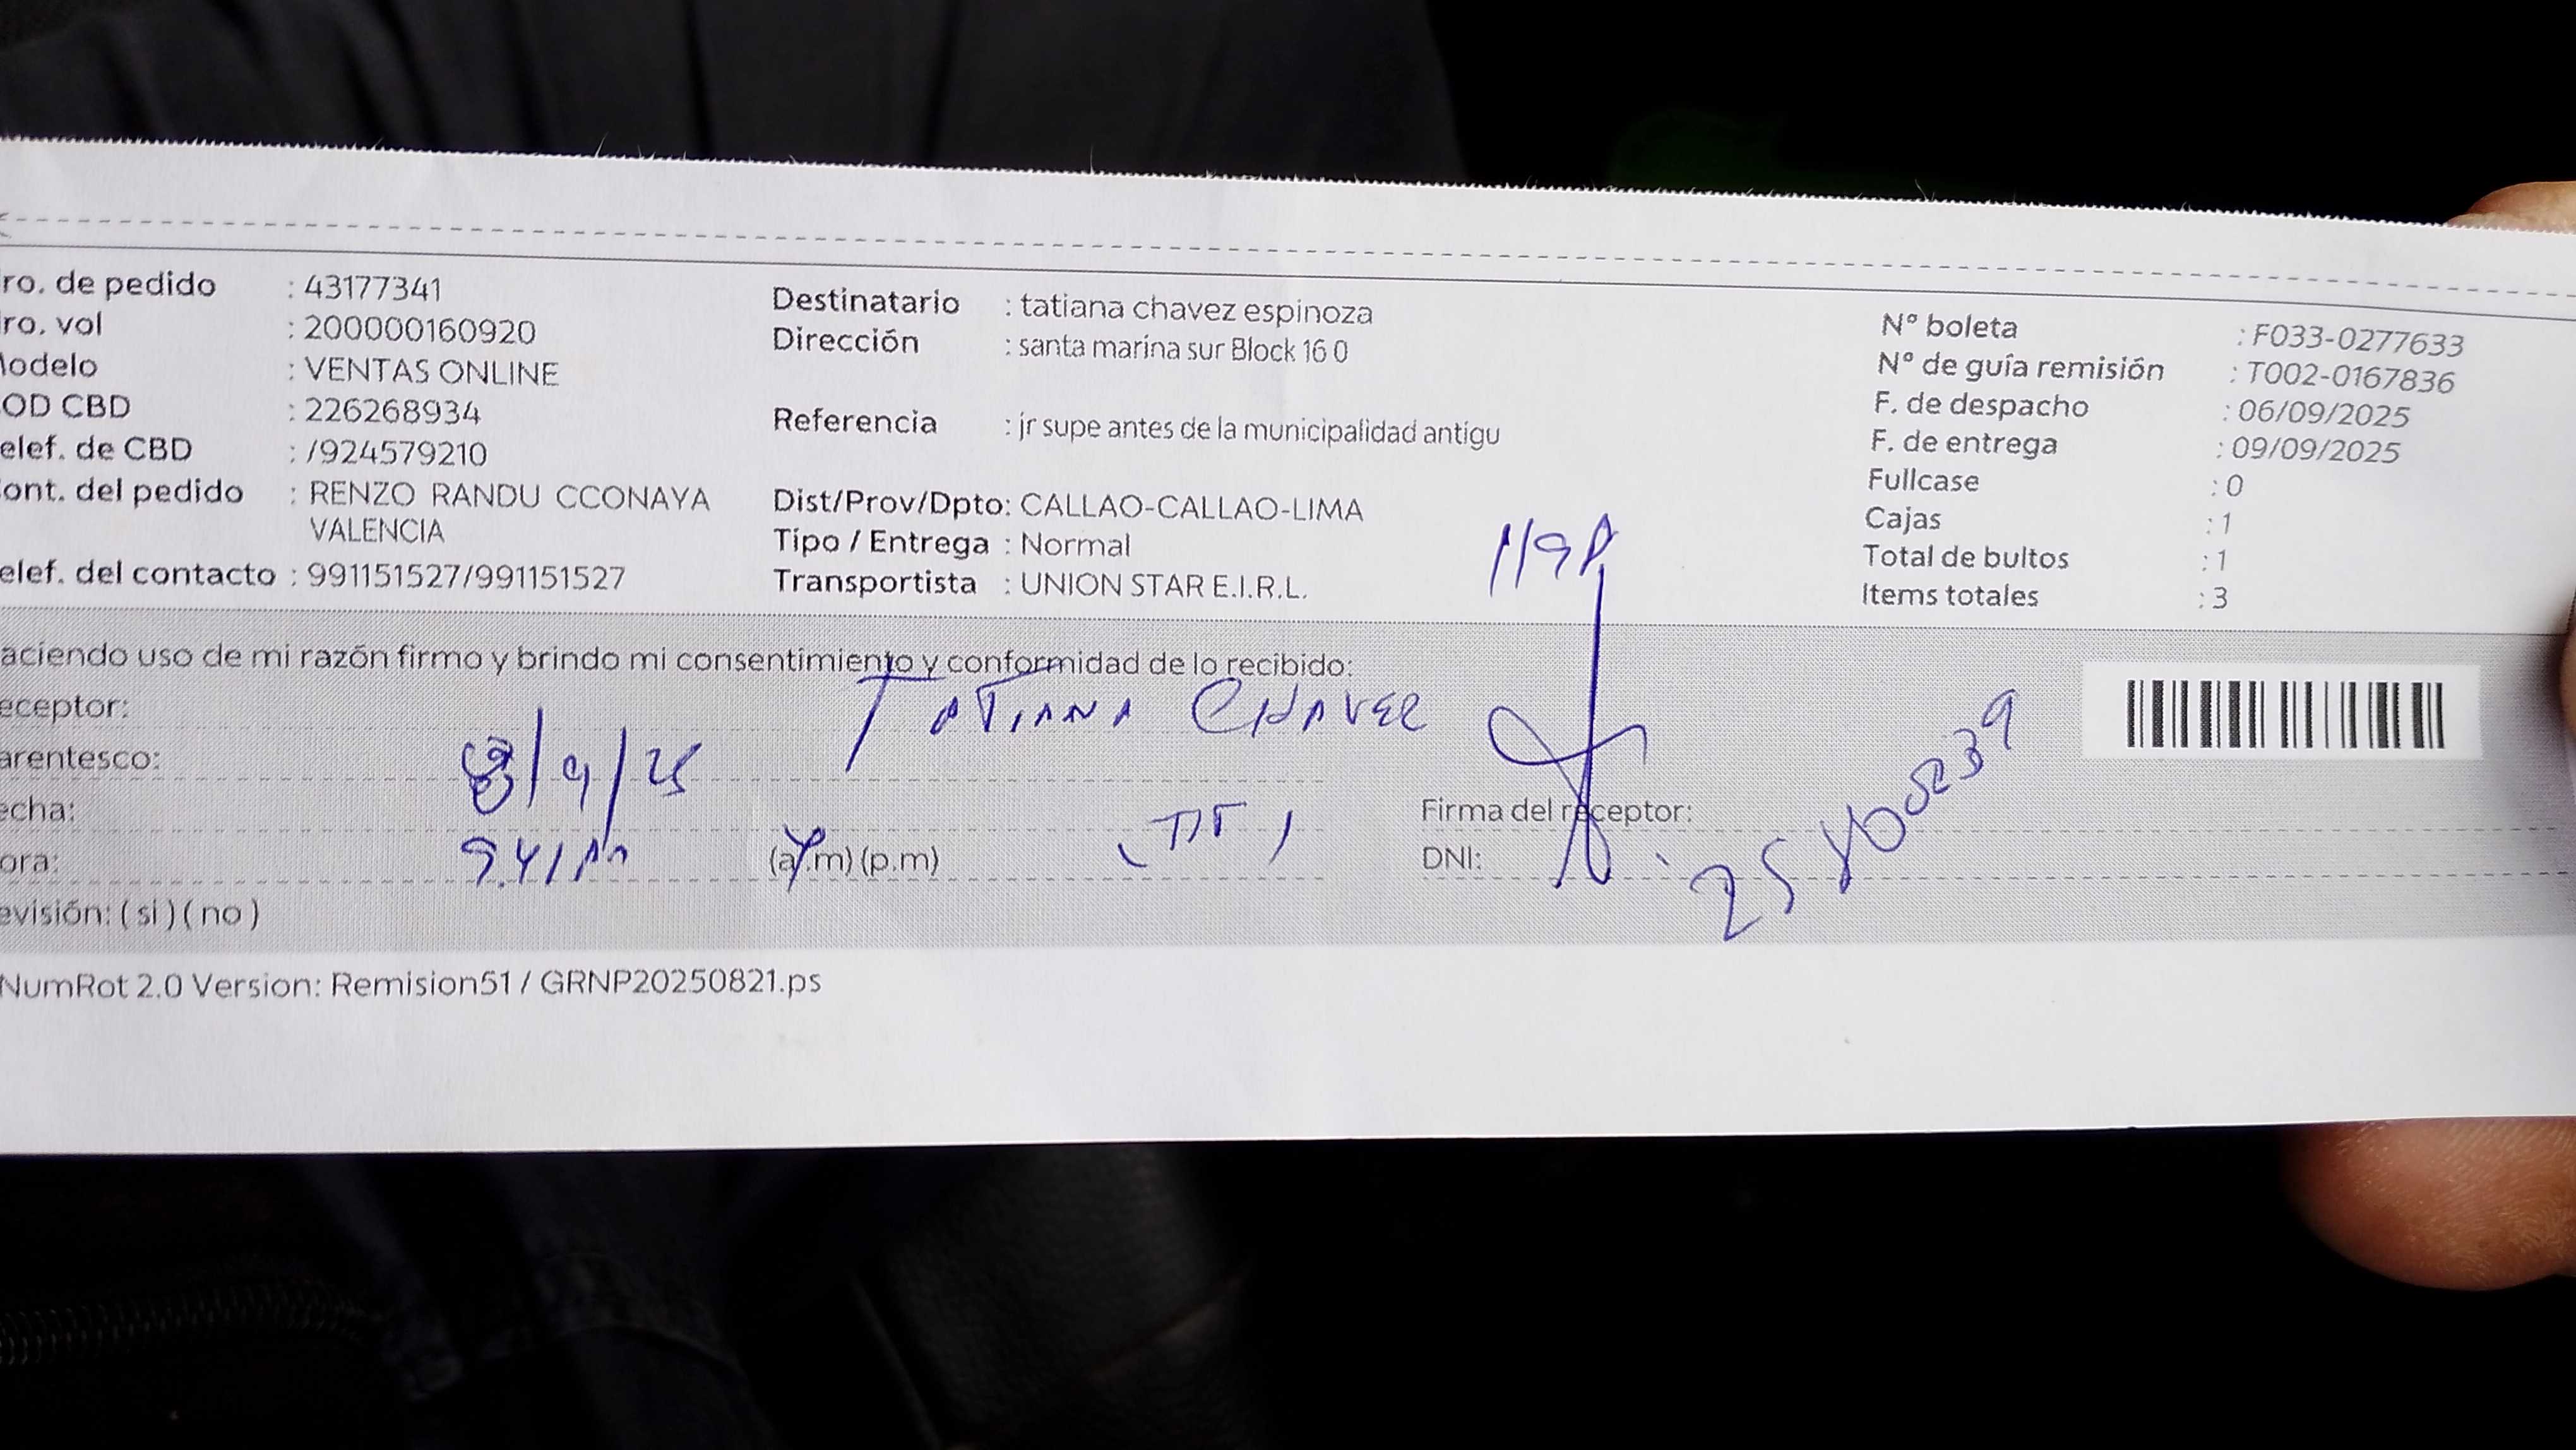 ro. de pedido : 43177341
ro. vol : 200000160920
lodelo : VENTAS ONLINE
OD CBD : 226268934
elef. de CBD : /924579210
ont. del pedido : RENZO RANDU CCONAYA
VALENCIA
elef. del contacto : 991151527/991151527
Destinatario : tatiana chavez espinoza
Dirección : santa marina sur Block 16 0
Referencia : jr supe antes de la municipalidad antigu
Dist/Prov/Dpto: CALLAO-CALLAO-LIMA
Tipo / Entrega : Normal
Transportista : UNION STAR E.I.R.L.
N° boleta : F033-0277633
N° de guía remisión : T002-0167836
F. de despacho : 06/09/2025
F. de entrega : 09/09/2025
Fullcase : 0
Cajas : 1
Total de bultos : 1
Items totales : 3
aciendo uso de mi razón firmo y brindo mi consentimiento y conformidad de lo recibido:
eceptor: TATIANA CHAVEZ
arentesco:
echa: 8/9/25
ora: (a.m) (p.m)
evisión: ( si ) ( no )
Firma del receptor:
DNI:
NumRot 2.0 Version: Remision51 / GRNP20250821.ps